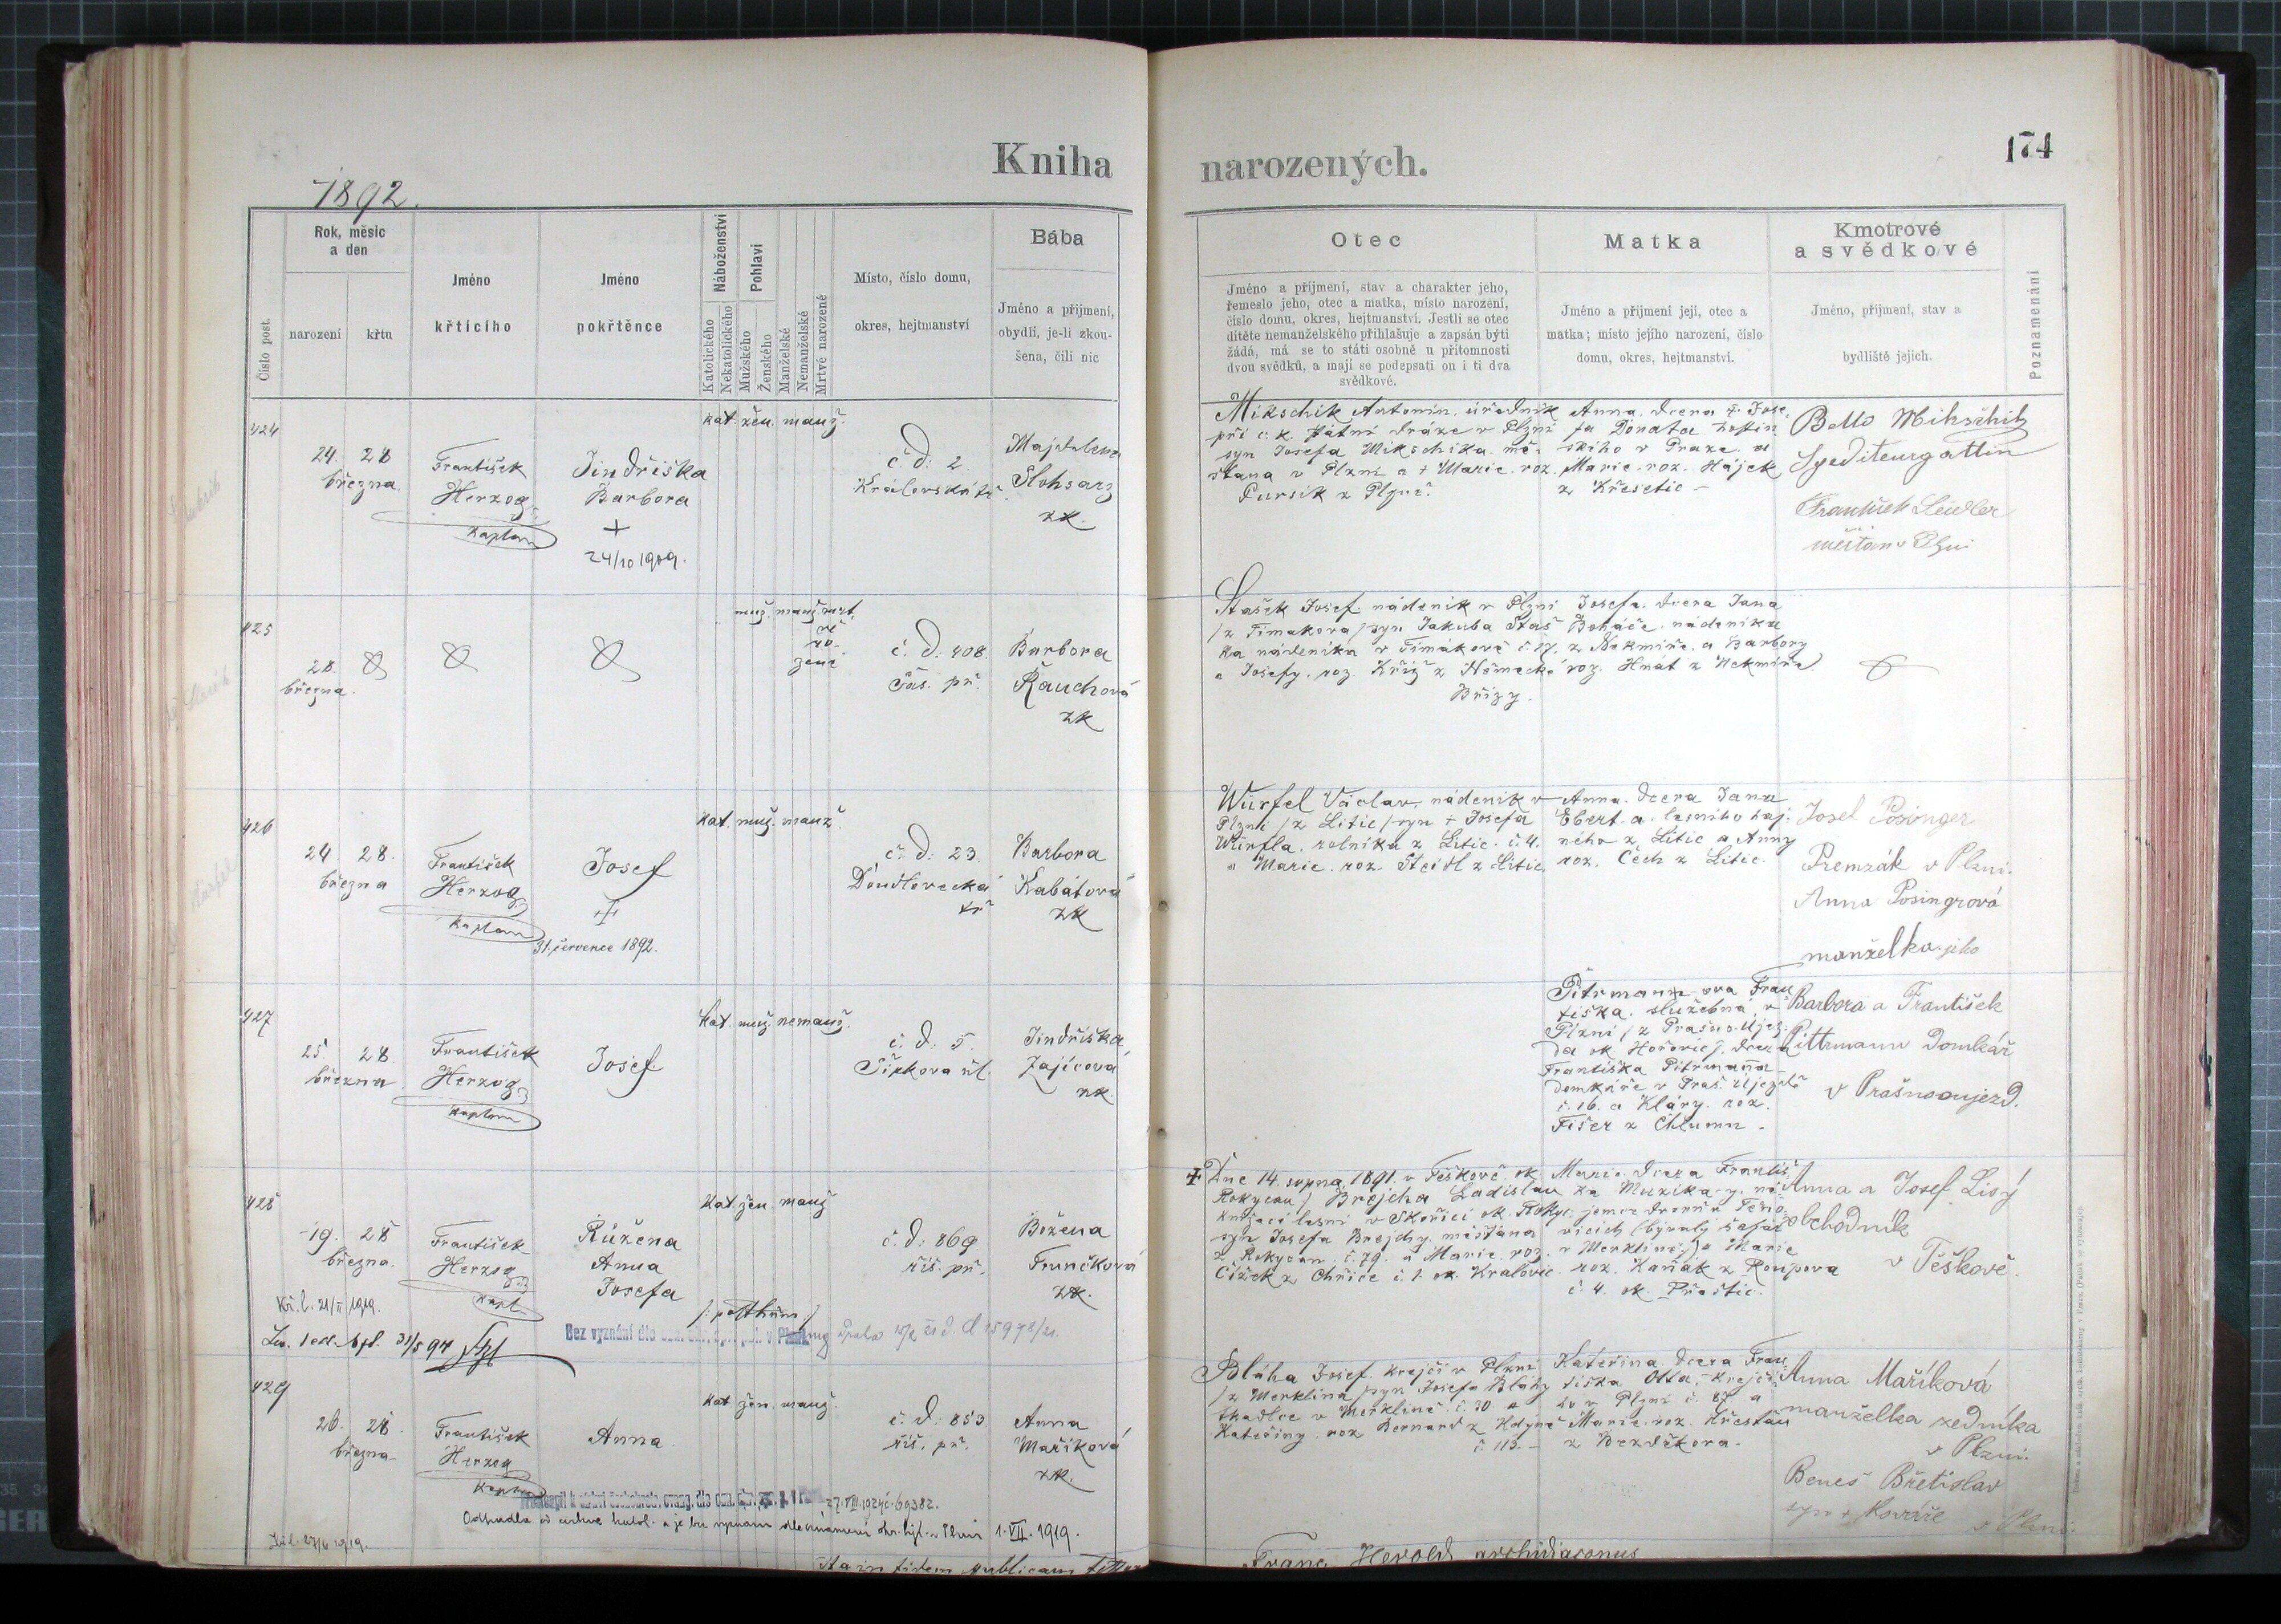 Kniha
narozených.
174
1892.
Číslo post.
Rok, měsíc
a den
narození
křtu
Jméno
křtícího
Jméno
pokřtěnce
Náboženství
Katolického
Nekatolického
Pohlaví
Mužského
Ženského
Manželské
Nemanželské
Mrtvé narozené
Místo, číslo domu,
okres, hejtmanství
Bába
Jméno a příjmení,
obydlí, je-li zkou-
šena, čili nic
Otec
Jméno a příjmení, stav a charakter jeho,
řemeslo jeho, otec a matka, místo narození,
číslo domu, okres, hejtmanství. Jestli se otec
dítěte nemanželského přihlašuje a zapsán býti
žádá, má se to státi osobně u přítomnosti
dvou svědků, a mají se podepsati on i ti dva
svědkové.
Matka
Jméno a příjmení její, otec a
matka; místo jejího narození, číslo
domu, okres, hejtmanství.
Kmotrové
a svědkové
Jméno, příjmení, stav a
bydliště jejich.
Poznamenání
424
24. 28
března.
František
Herzog
kaplan
Jindřiška
Barbora
+
24/10 1909.
kat. žen. manž.
č. d: 2.
Královská tř.
Majdalena
zk.
Mikschik Antonín, úředník
při c. k. státní dráze v Plzni
syn Josefa Mikschika. mě-
šťana v Plzni a + Marie. roz.
Pursik z Plzně.
Anna. dcera + Jose
fa Donata
ského v Praze a
Marie. roz. Hájek
z Křesetic -
Spediteurgattin
František Seidler
měšťan v Plzni
425
28.
března.
muž. manž. mrt.
vě
ro-
zené
č. d: 408.
Řás. př.
Barbora
Rauchová
zk
Stašek Josef. nádeník v Plzni
/z Timakova/ syn Jakuba Staš
ka nádeníka v Timákově č. 27.
a Josefy. roz. Kříž z Německé
Břízy.
Josefa. dcera Jana
Boháče. nádeníka
z Nekmíře. a Barbory
roz. Hnát z Nekmíře
426
24 28.
března
František
Herzog
kaplan
Josef
31. července 1892.
kat. muž. manž.
č. d: 23.
Doudlevecká
tř
Barbora
Kabátová
zk
Würfel Václav, nádeník v
Plzni /z Litic/ syn + Josefa
Würfla, rolníka z Litic. č. 4.
a Marie. roz. Steidl z Litic
Anna. dcera Jana
Ebert-a. lesního haj-
ného z Litic a Anny
roz. Čech z Litic.
Josef Posinger
Premzák v Plzni.
Anna Posingrová
manželka jeho
427
25. 28.
března
František
Herzog
kaplan
Josef.
kat. muž. nemanž.
č. d: 5.
Šípkova ul.
Jindřiška
Zajícová
zk.
Pitrmann-ova Fran
tiška. služebná v
Plzni /z Prašno-Újez-
da ok. Hořovic/, dcera
Františka Pitrmanna-
domkáře v Praš. Újezdě
č. 16. a Kláry. roz.
Fišer z Chlumu.
Barbora a František
Pittrmann Domkář
v Prašnoujezd.
428
19. 28
března.
František
Herzog
kapl.
Růžena
Anna
Josefa
/: posthum :/
kat. žen. manž
č. d: 869.
říš. př.
Božena
Frunčková
zk.
Kř. l. 21/II 1919.
Bez vyznání dle
+ Dne 14. srpna 1891. v Těškově ok.
Rokycan/ Brejcha Ladislav
knížecí lesní v Skořici ok. Rokyc.
syn Josefa Brejchy. měšťana
z Rokycan. č. 79. a Marie roz.
Čížek z Chříče č. 1. ok. Kralovic.
Marie. dcera Františ
ka Muzika-y. ná
jemce dvorů v Těno
vicích (bývalý šafář
v Merklíně) a Marie
roz. Kaňák z Roupova
č. 4. ok. Přeštic.
Anna a Josef Lisý
obchodník
v Těškově.
429
26. 28.
března-
František
Herzog
kaplan
Anna.
kat. žen. manž.
č. d: 853
říš. př.
Anna
Maříková
zk.
27. VIII. 1924 č. 69382.
1. VII. 1919.
Bláha Josef. krejčí v Plzni
/z Merklína/ syn Josefa Bláhy
tkadlce v Merklíně. č. 30 a
Kateřiny. roz Bernard z Kdyně
č. 113.-
Kateřina. dcera Fran
tiška Otta, krejčí-
ho v Plzni č. 87. a
Marie. roz. Křesťan
z Bezděkova.
Anna Maříková
manželka zedníka
v Plzni.
Beneš Břetislav
syn + Kováře
v Plzni.
Ita in fidem publicam
Franc. Herold archidiaconus